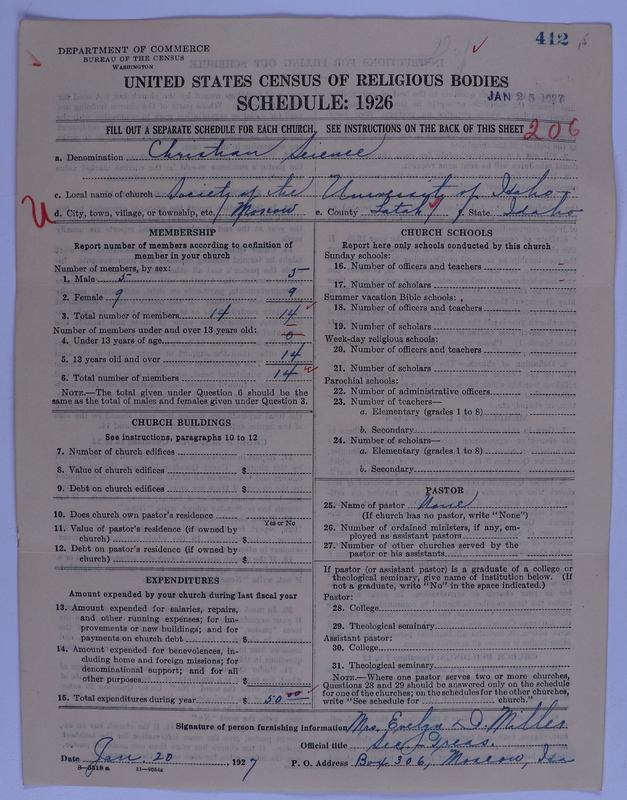 412
DEPARTMENT OF COMMERCE
BUREAU OF THE CENSUS
WASHINGTON
UNITED STATES CENSUS OF RELIGIOUS BODIES
SCHEDULE: 1926
JAN 25 1927
FILL OUT A SEPARATE SCHEDULE FOR EACH CHURCH. SEE INSTRUCTIONS ON THE BACK OF THIS SHEET
206
a. Denomination Christian Science
c. Local name of church Society of the University of Idaho
d. City, town, village, or township, etc. Moscow e. County Latah f. State Idaho
MEMBERSHIP
Report number of members according to definition of
member in your church
Number of members, by sex:
1. Male 5 5
2. Female 9 9
3. Total number of members 14 14
Number of members under and over 13 years old:
4. Under 13 years of age 0
5. 13 years old and over 14
6. Total number of members 14
NOTE.—The total given under Question 6 should be the
same as the total of males and females given under Question 3.
CHURCH BUILDINGS
See instructions, paragraphs 10 to 12
7. Number of church edifices
8. Value of church edifices $
9. Debt on church edifices $
10. Does church own pastor's residence
Yes or No
11. Value of pastor's residence (if owned by
church) $
12. Debt on pastor's residence (if owned by
church) $
EXPENDITURES
Amount expended by your church during last fiscal year
13. Amount expended for salaries, repairs,
and other running expenses; for im-
provements or new buildings; and for
payments on church debt $
14. Amount expended for benevolences, in-
cluding home and foreign missions; for
denominational support; and for all
other purposes $
15. Total expenditures during year $ 50 00
CHURCH SCHOOLS
Report here only schools conducted by this church
Sunday schools:
16. Number of officers and teachers –
17. Number of scholars –
Summer vacation Bible schools:
18. Number of officers and teachers
19. Number of scholars
Week-day religious schools:
20. Number of officers and teachers
21. Number of scholars
Parochial schools:
22. Number of administrative officers
23. Number of teachers—
a. Elementary (grades 1 to 8)
b. Secondary
24. Number of scholars—
a. Elementary (grades 1 to 8)
b. Secondary
PASTOR
25. Name of pastor None
(If church has no pastor, write "None")
26. Number of ordained ministers, if any, em-
ployed as assistant pastors
27. Number of other churches served by the
pastor or his assistants
If pastor (or assistant pastor) is a graduate of a college or
theological seminary, give name of institution below. (If
not a graduate, write "No" in the space indicated.)
Pastor:
28. College
29. Theological seminary
Assistant pastor:
30. College
31. Theological seminary
NOTE.—Where one pastor serves two or more churches,
Questions 28 and 29 should be answered only on the schedule
for one of the churches; on the schedules for the other churches,
write "See schedule for church."
Signature of person furnishing information Mrs. Evelyn D. Miller
Official title Sec. & Treas.
Date Jan. 20, 1927 P. O. Address Box 306, Moscow, Ida
8—5518a 11—9054a